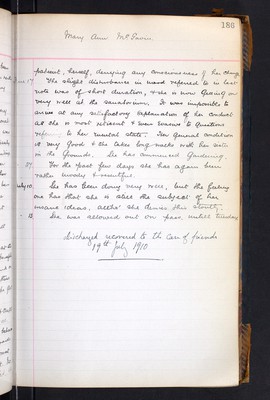 186
Mary Ann McEwin.
patient, herself, denying any consciousness of her change
17 The slight disturbance in mood referred to in last
note was of short duration, & she is now going on
very well at the sanatorium. It was impossible to
arrive at any satisfactory explanation of her conduct
as she is most reticent & even evasive to questions
referring to her mental state. Her general condition
is very good & she takes long walks with her sister
in the grounds. She has commenced gardening.
27. For the past few days she has again been
rather moody & resentful.
July 10. She has been doing very well, but the feeling
one has that she is still the subject of her
insane ideas, altho' she denies this stoutly.
12. She was allowed out on pass until Tuesday
Discharged recovered to the care of friends
19th July 1910